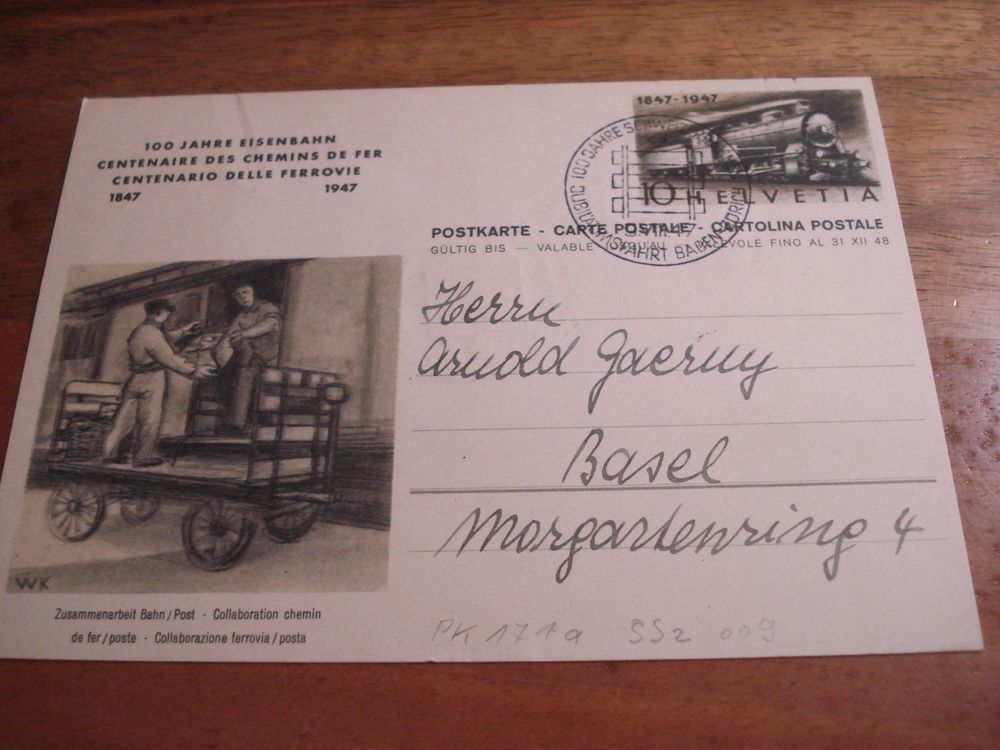 100 JAHRE EISENBAHN
CENTENAIRE DES CHEMINS DE FER
CENTENARIO DELLE FERROVIE
1847 1947
1847-1947
10 HELVETIA
100 JAHRE
JUBILÄUMSFAHRT BADEN-ZÜRICH
POSTKARTE - CARTE POSTALE - CARTOLINA POSTALE
GÜLTIG BIS — VALABLE FINO AL 31 XII 48
Herrn
Arnold Gaerny
Basel
Morgartenring 4
WK
Zusammenarbeit Bahn / Post · Collaboration chemin
de fer / poste · Collaborazione ferrovia / posta
PK 171a SSz 009